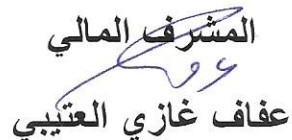 المشرف المالي
عفاف غازي العتيبي